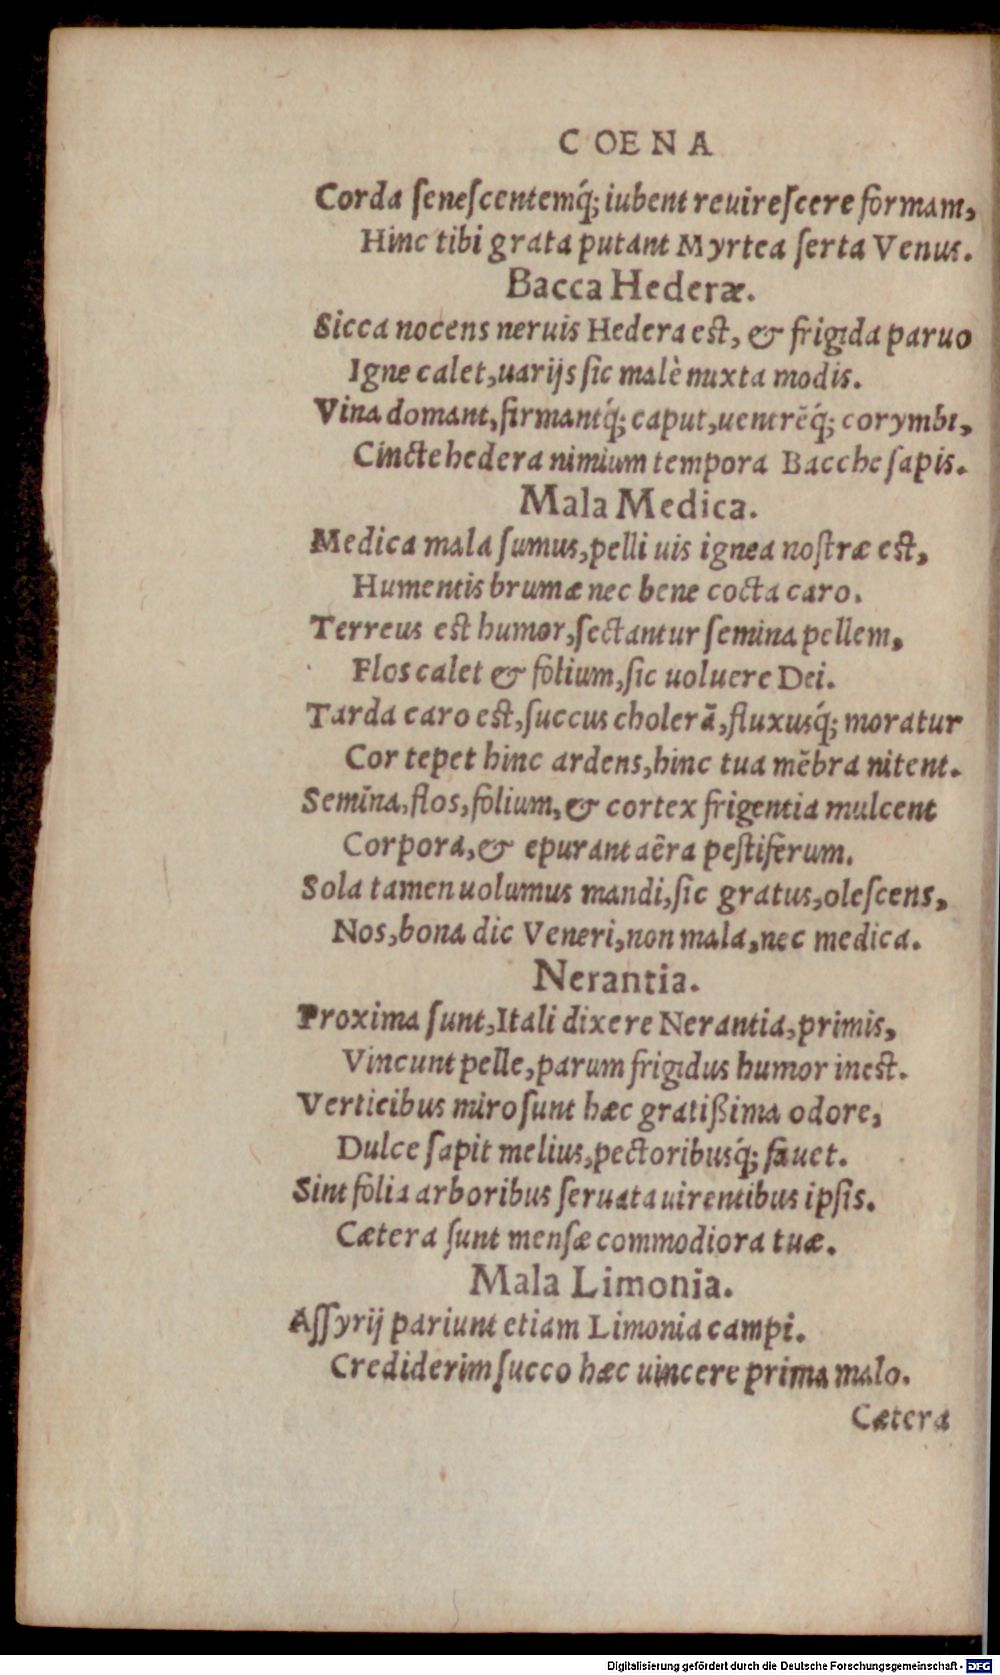 COENA
Corda ſeneſcentemq́; iubent reuireſcere formam,
Hinc tibi grata putant Myrtea ſerta Venus.
Bacca Hederæ.
Sicca nocens neruis Hedera est, & frigida paruo
Igne calet, uarijs ſic malè mixta modis.
Vina domant, firmantq́; caput, uentrēq́; corymbi,
Cincte hedera nimium tempora Bacche ſapis.
Mala Medica.
Medica mala ſumus, pelli uis ignea noſtræ est,
Humentis brumæ nec bene cocta caro.
Terreus est humor, ſectantur ſemina pellem,
Flos calet & folium, ſic uoluere Dei.
Tarda caro est, ſuccus cholerā, fluxusq́; moratur
Cor tepet hinc ardens, hinc tua mēbra nitent.
Semina, flos, folium, & cortex frigentia mulcent
Corpora, & epurant aëra peſtiferum.
Sola tamen uolumus mandi, ſic gratus, oleſcens,
Nos, bona dic Veneri, non mala, nec medica.
Nerantia.
Proxima ſunt, Itali dixere Nerantia, primis,
Vincunt pelle, parum frigidus humor inest.
Verticibus miro ſunt hæc gratißima odore,
Dulce ſapit melius, pectoribusq́; fauet.
Sint folia arboribus ſeruata uirentibus ipſis.
Cætera ſunt menſæ commodiora tuæ.
Mala Limonia.
Aſſyrij pariunt etiam Limonia campi.
Crediderim ſucco hæc uincere prima malo.
Cætera
Digitalisierung gefördert durch die Deutsche Forschungsgemeinschaft - DFG